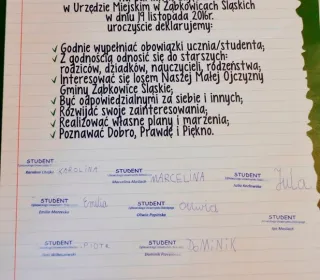 w Urzędzie Miejskim w Ząbkowicach Śląskich
w dniu 19 listopada 2016r.
uroczyście deklarujemy:
✓ Godnie wypełniać obowiązki ucznia/studenta;
✓ Z godnością odnosić się do starszych:
rodziców, dziadków, nauczycieli, rodzeństwa;
✓ Interesować się losem Naszej Małej Ojczyzny
Gminy Ząbkowice Śląskie;
✓ Być odpowiedzialnymi za siebie i innych;
✓ Rozwijać swoje zainteresowania;
✓ Realizować własne plany i marzenia;
✓ Poznawać Dobro, Prawdę i Piękno.
STUDENT
Karolina
KAROLINA
STUDENT
MARCELINA
STUDENT
Jula
STUDENT
Emilia
Emilia
STUDENT
Oliwia
STUDENT
STUDENT
PIOTR
STUDENT
Dominik
DOMINIK